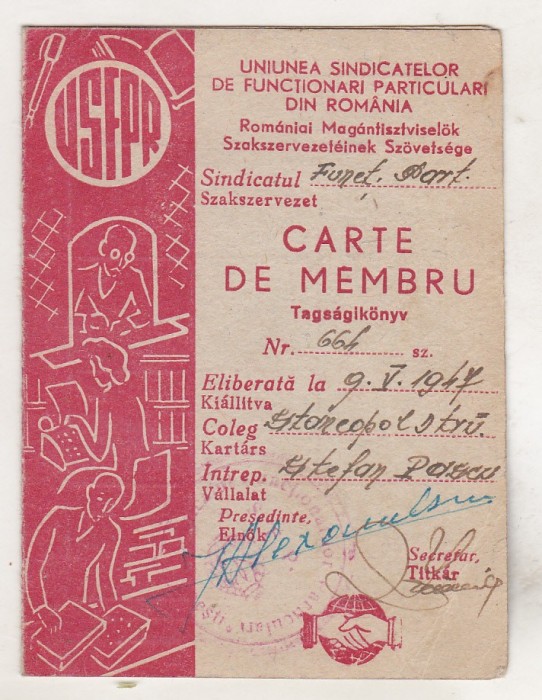 USFPR
UNIUNEA SINDICATELOR
DE FUNCTIONARI PARTICULARI
DIN ROMÂNIA
Romániai Magántisztviselök
Szakszervezetéinek Szövetsége
Sindicatul Funcț. Part.
Szakszervezet
CARTE
DE MEMBRU
Tagságikönyv
Nr. 664 sz.
Eliberată la 9.V.1947
Kiállitva
Coleg
Kartárs
Intrep. Ștefan Pascu
Vállalat
Președinte,
Elnök
Secretar,
Titkár